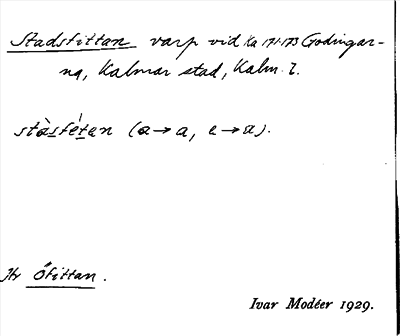 Stadsfittan varp vid Ka 171-173 Godringar-
na, Kalmar stad, Kalm. l.
stàsféten (a→a, e→a).
Jfr Öfittan.
Ivar Modéer 1929.